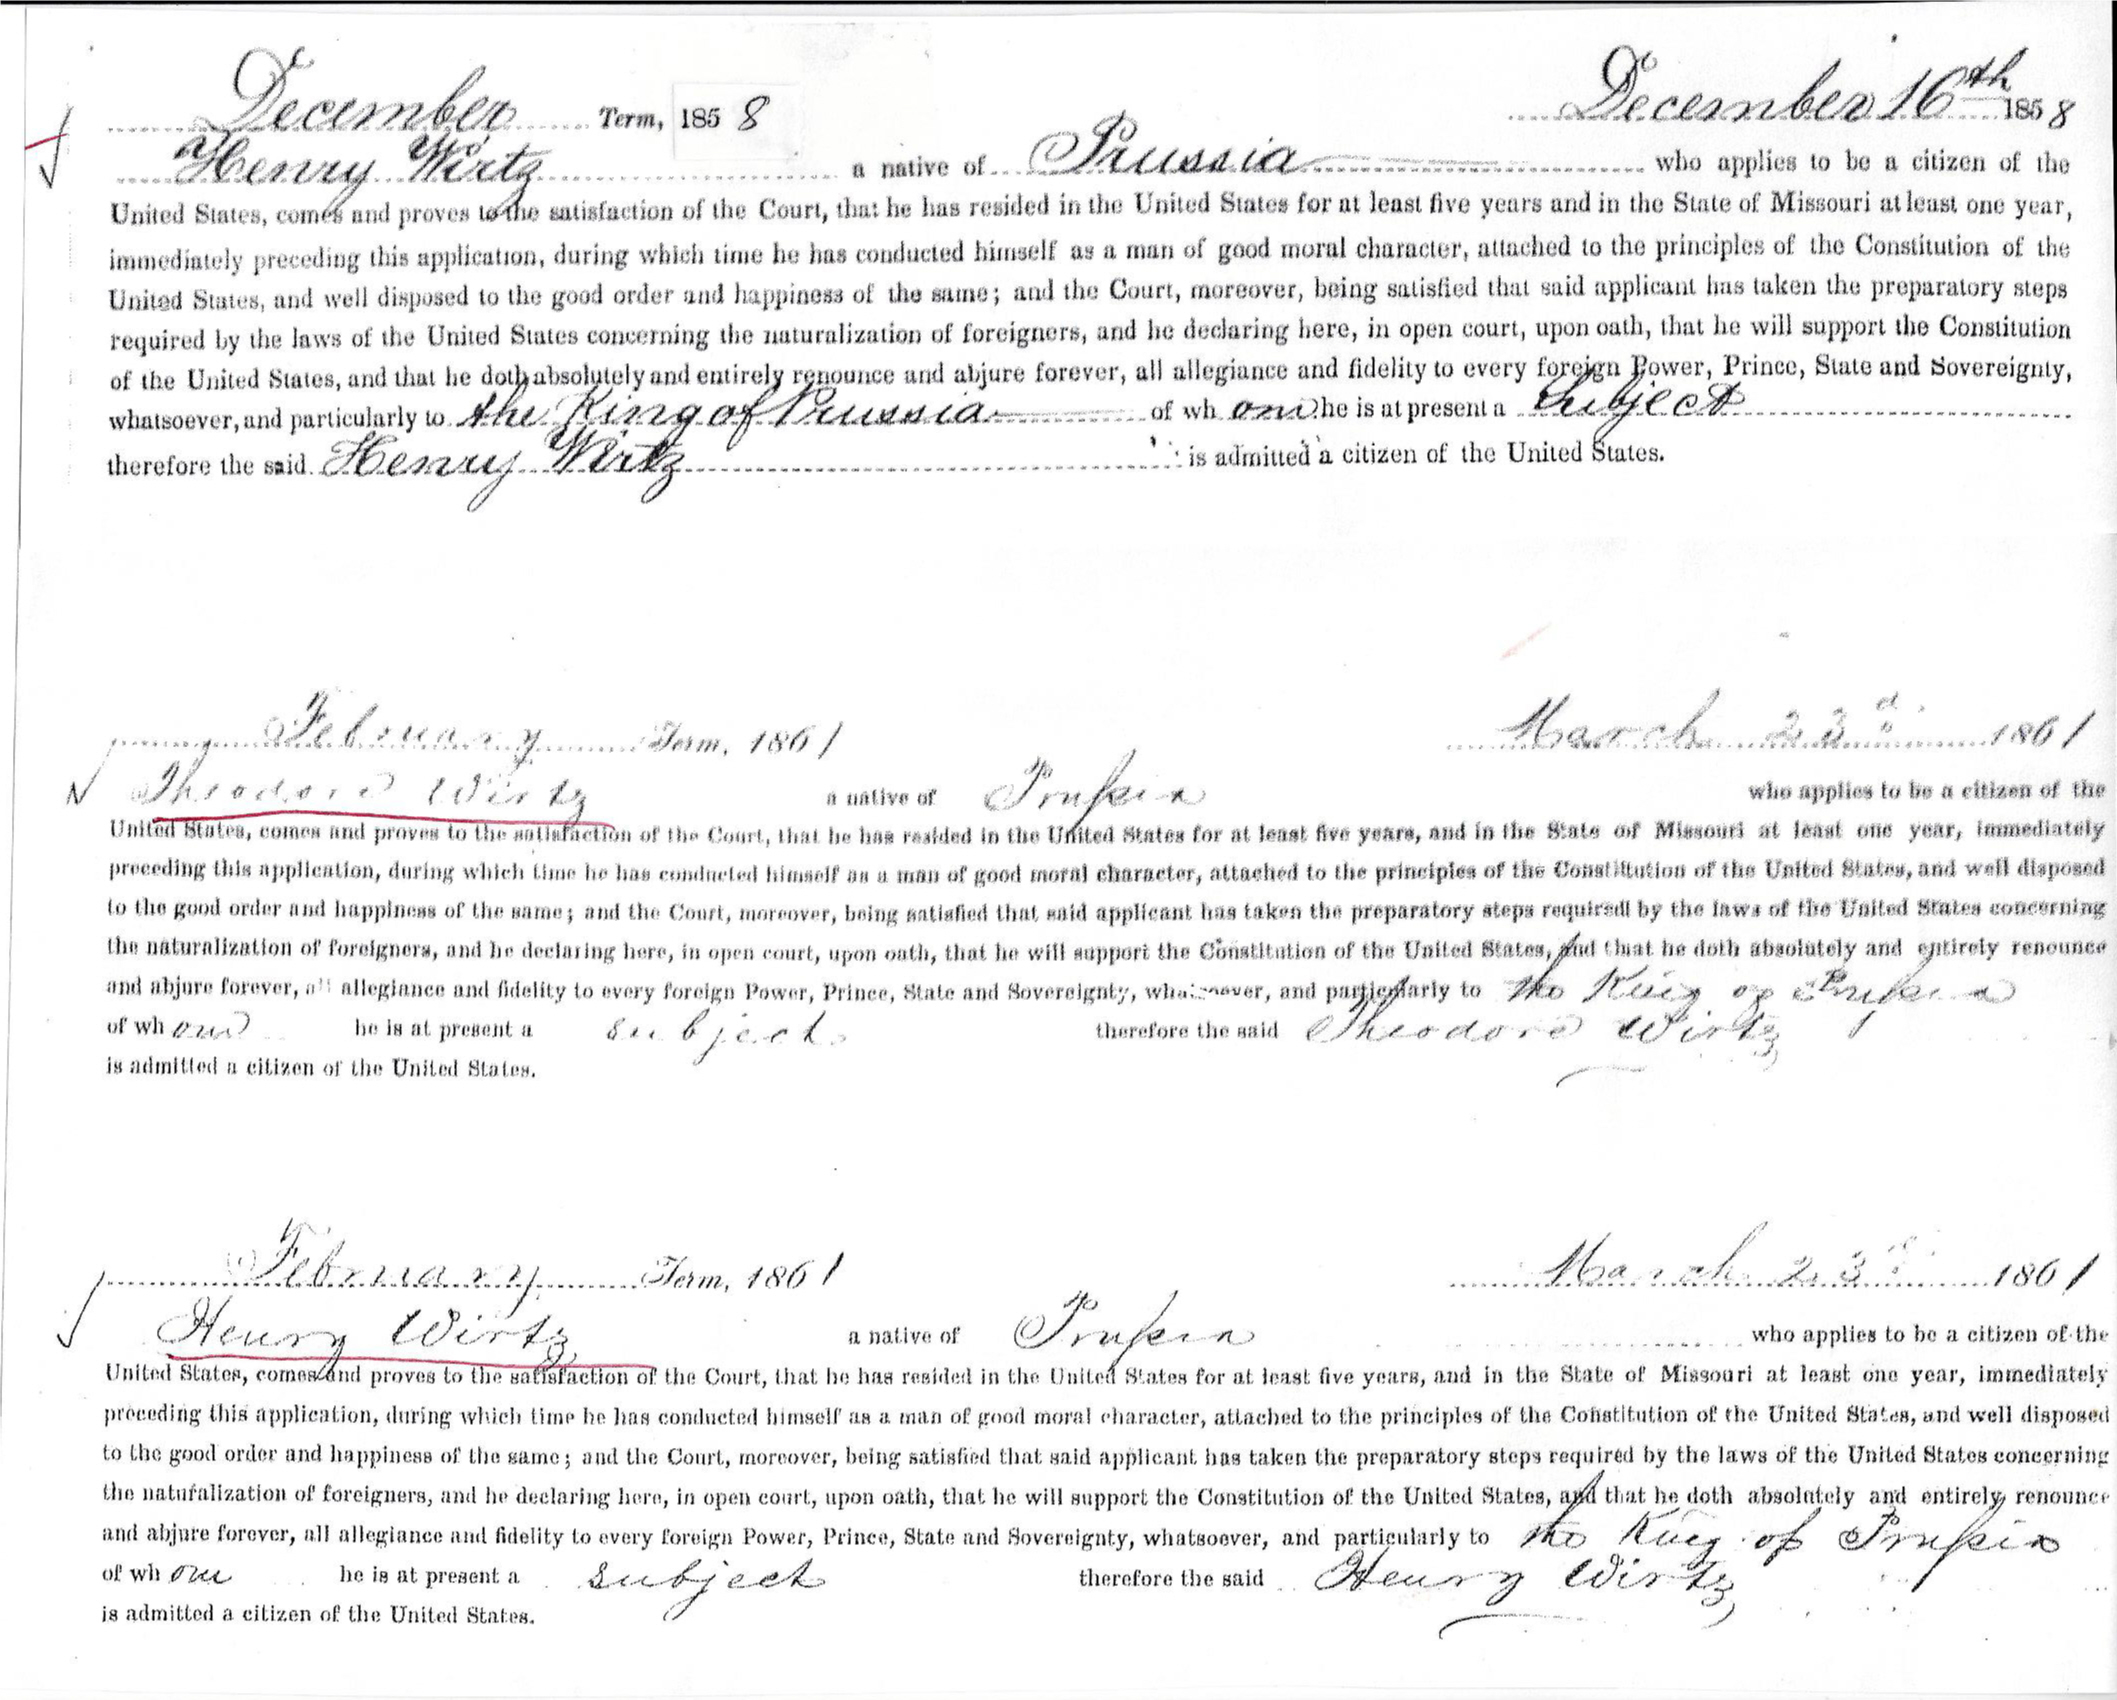 December Term, 1858 December 16th 1858
Henry Wirtz a native of Prussia who applies to be a citizen of the
United States, comes and proves to the satisfaction of the Court, that he has resided in the United States for at least five years and in the State of Missouri at least one year,
immediately preceding this application, during which time he has conducted himself as a man of good moral character, attached to the principles of the Constitution of the
United States, and well disposed to the good order and happiness of the same; and the Court, moreover, being satisfied that said applicant has taken the preparatory steps
required by the laws of the United States concerning the naturalization of foreigners, and he declaring here, in open court, upon oath, that he will support the Constitution
of the United States, and that he doth absolutely and entirely renounce and abjure forever, all allegiance and fidelity to every foreign Power, Prince, State and Sovereignty,
whatsoever, and particularly to the King of Prussia of wh om he is at present a Subject
therefore the said Henry Wirtz is admitted a citizen of the United States.
February Term, 1861 March 23d 1861
Theodore Wirtz a native of Prussia who applies to be a citizen of the
United States, comes and proves to the satisfaction of the Court, that he has resided in the United States for at least five years, and in the State of Missouri at least one year, immediately
preceding this application, during which time he has conducted himself as a man of good moral character, attached to the principles of the Constitution of the United States, and well disposed
to the good order and happiness of the same; and the Court, moreover, being satisfied that said applicant has taken the preparatory steps required by the laws of the United States concerning
the naturalization of foreigners, and he declaring here, in open court, upon oath, that he will support the Constitution of the United States, and that he doth absolutely and entirely renounce
and abjure forever, all allegiance and fidelity to every foreign Power, Prince, State and Sovereignty, whatsoever, and particularly to the King of Prussia
of wh om he is at present a subject therefore the said Theodore Wirtz
is admitted a citizen of the United States.
February Term, 1861 March 23d 1861
Henry Wirtz a native of Prussia who applies to be a citizen of the
United States, comes and proves to the satisfaction of the Court, that he has resided in the United States for at least five years, and in the State of Missouri at least one year, immediately
preceding this application, during which time he has conducted himself as a man of good moral character, attached to the principles of the Constitution of the United States, and well disposed
to the good order and happiness of the same; and the Court, moreover, being satisfied that said applicant has taken the preparatory steps required by the laws of the United States concerning
the naturalization of foreigners, and he declaring here, in open court, upon oath, that he will support the Constitution of the United States, and that he doth absolutely and entirely renounce
and abjure forever, all allegiance and fidelity to every foreign Power, Prince, State and Sovereignty, whatsoever, and particularly to the King of Prussia
of wh om he is at present a subject therefore the said Henry Wirtz
is admitted a citizen of the United States.